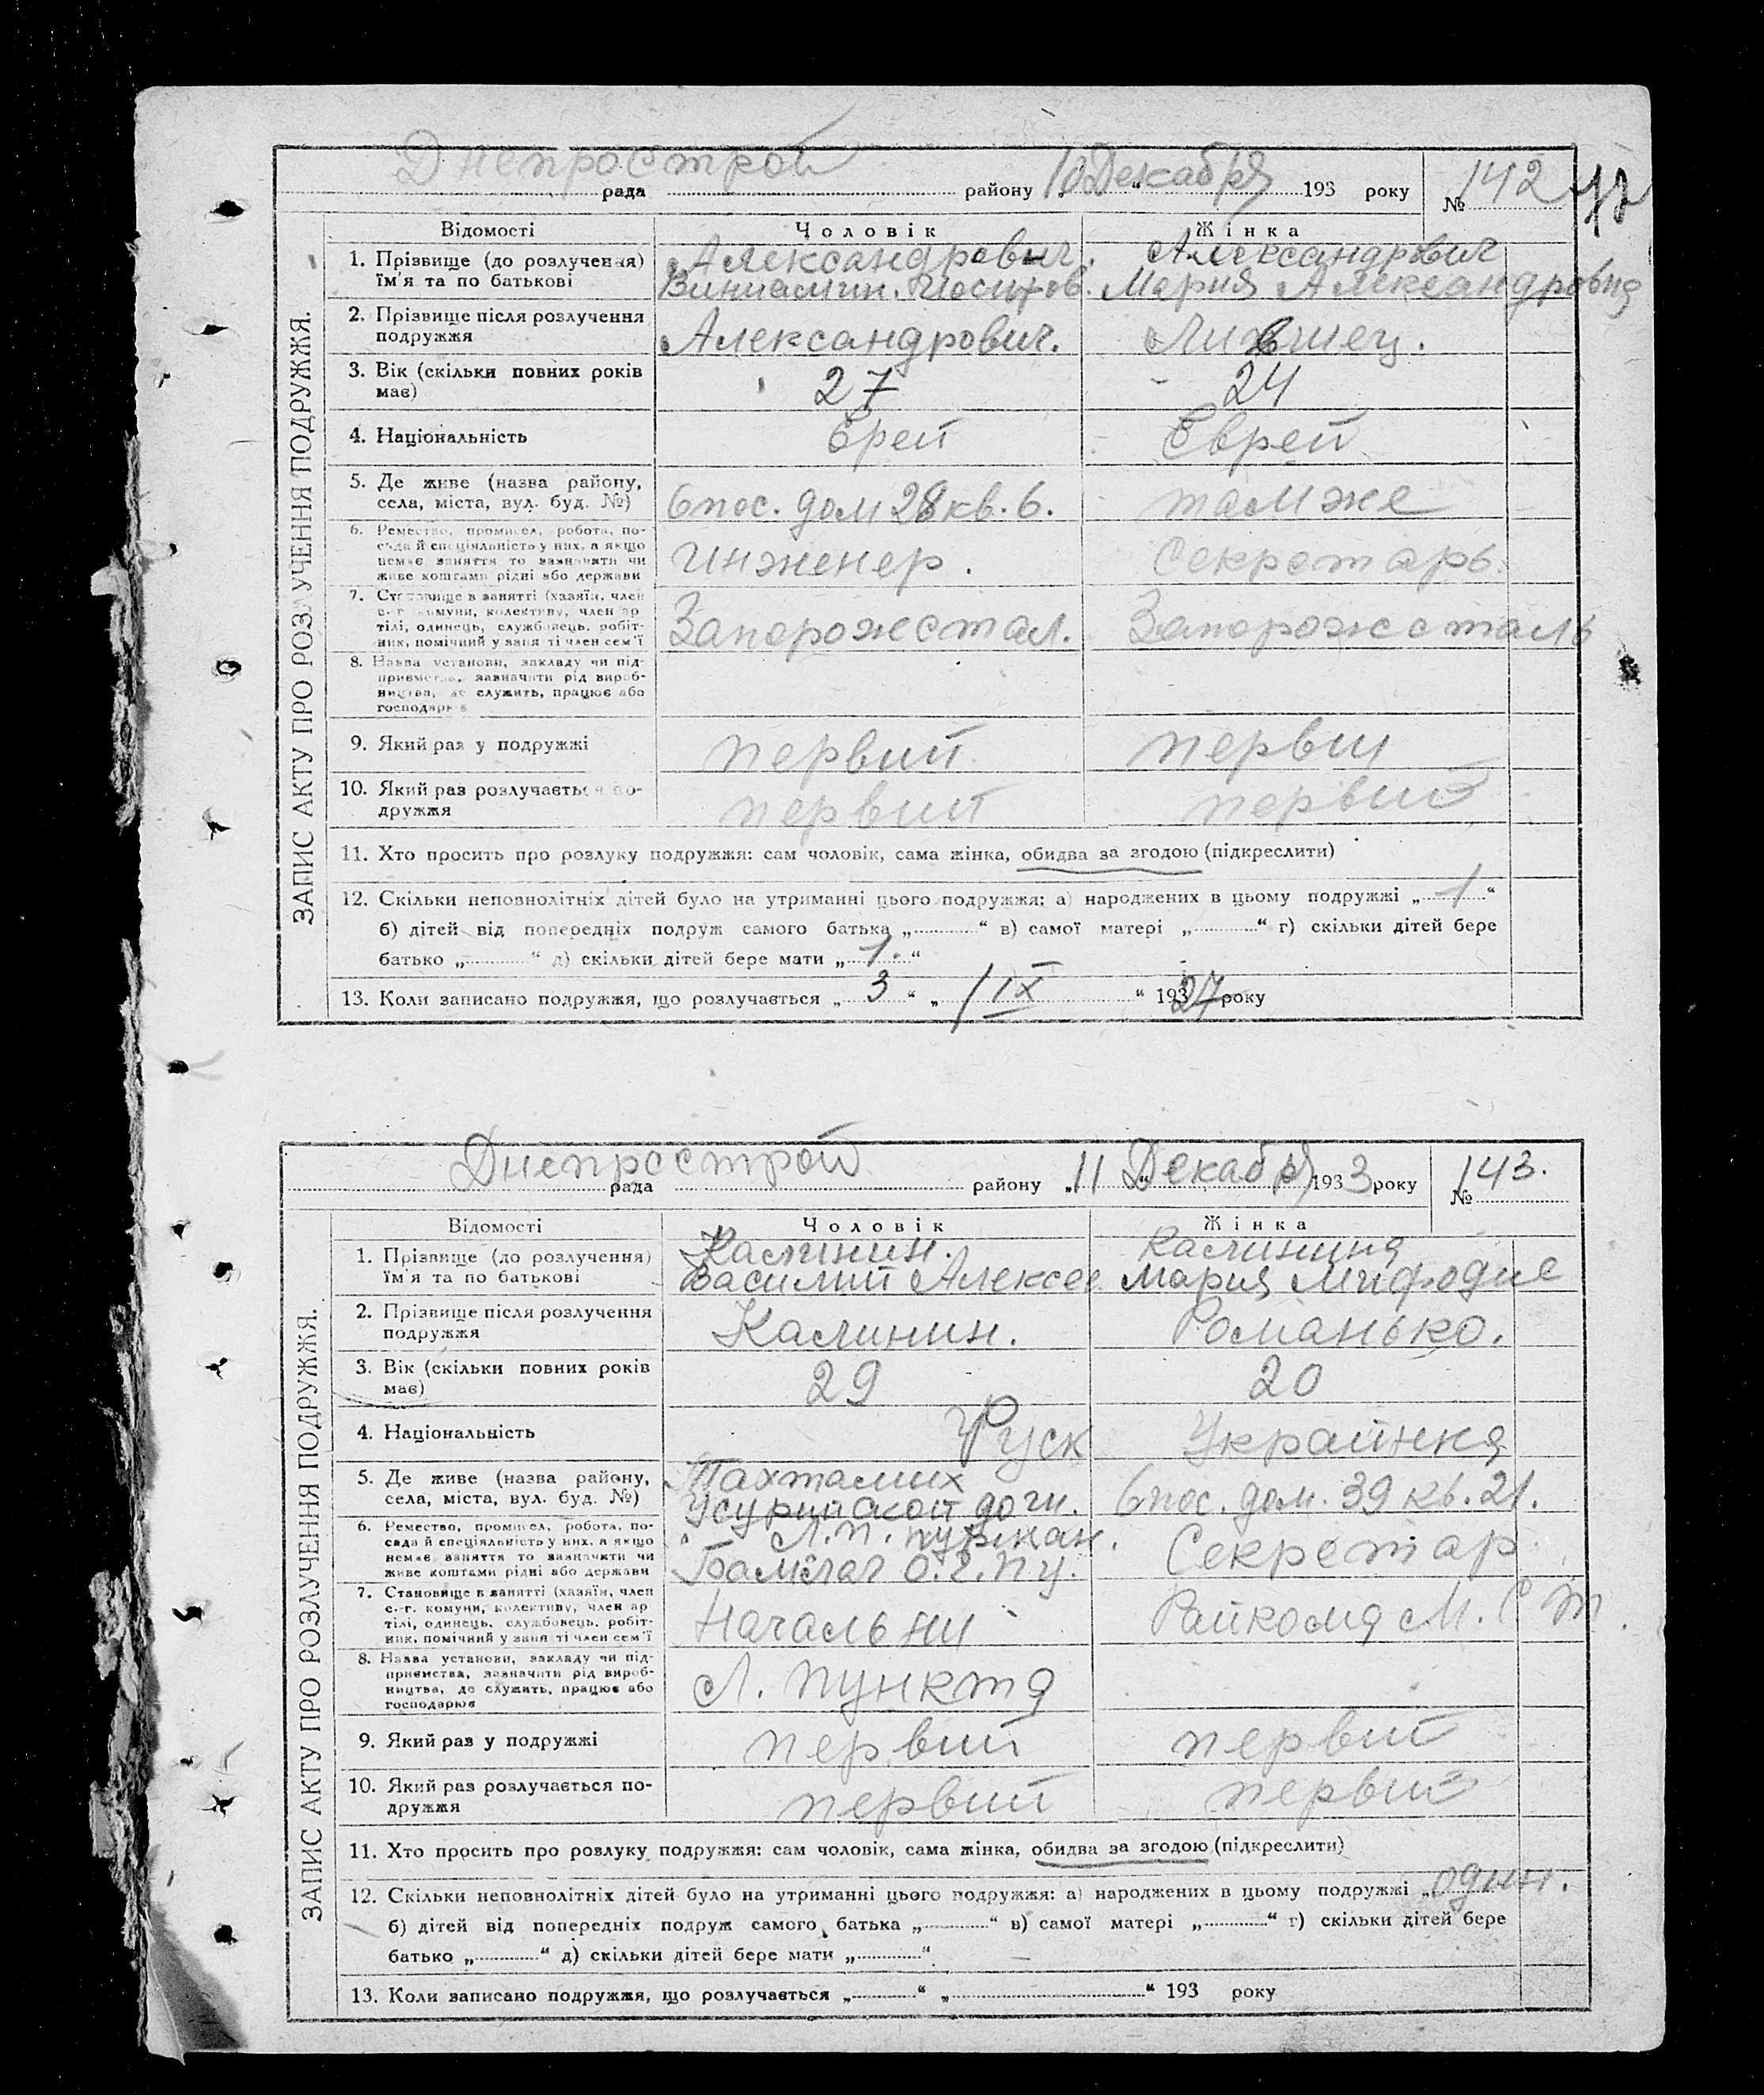 Днепрострой
рада району „10 Декабря 193 року № 142
ЗАПИС АКТУ ПРО РОЗЛУЧЕННЯ ПОДРУЖЖЯ.
Відомості Чоловік Жінка
1. Прізвище (до розлучення) Александрович. Александрович
їм'я та по батькові Вининамин. Иосифов. Мария Александровна
2. Прізвище після розлучення
подружжя Александрович. Лившиец.
3. Вік (скільки повних років
має) 27 24
4. Національність Ерей Еврей
5. Де живе (назва району,
села, міста, вул. буд. №) 6 пос. дом 28 кв. 6. там же
6. Ремество, промисел, робота, по-
сада й спеціяльність у них, а якщо
немає заняття то зазначити чи
живе коштами рідні або держави Инженер. Секретарь.
7. Становище в занятті (хазяїн, член
с.-г. комуни, колективу, член ар
тілі, одинець, службовець, робіт-
ник, помічний у заня ті член сем'ї Запорожстал. Запорожсталь
8. Назва установи, закладу чи під-
приємства, зазначити рід вироб-
ництва, де служить, працює або
господарює
9. Який раз у подружжі первий первий
10. Який раз розлучається по-
дружжя первий первий
11. Хто просить про розлуку подружжя: сам чоловік, сама жінка, обидва за згодою (підкреслити)
12. Скільки неповнолітніх дітей було на утриманні цього подружжя: а) народжених в цьому подружжі „1“
б) дітей від попередніх подруж самого батька „ “ в) самої матері „ “ г) скільки дітей бере
батько „ “ д) скільки дітей бере мати „1.“
13. Коли записано подружжя, що розлучається „3“ „/IX“ 1927 року
Днепрострой
рада району „11 Декабря 1933 року № 143.
ЗАПИС АКТУ ПРО РОЗЛУЧЕННЯ ПОДРУЖЖЯ.
Відомості Чоловік Жінка
1. Прізвище (до розлучення) Калинин. Калинина
їм'я та по батькові Василий Алексее Мария Мифодие
2. Прізвище після розлучення
подружжя Калинин. Романько.
3. Вік (скільки повних років
має) 29 20
4. Національність Руск Украинка
5. Де живе (назва району, Тахтамих
села, міста, вул. буд. №) Усурийской доги. 6 пос. дом. 39 кв. 21.
6. Ремество, промисел, робота, по-
сада й спеціяльність у них, а якщо
немає заняття то зазначити чи
живе коштами рідні або держави Бамлаг О.Г.П.У. Секретар
7. Становище в занятті (хазяїн, член
с.-г. комуни, колективу, член ар
тілі, одинець, службовець, робіт-
ник, помічний у заня ті член сем'ї Начальни Райкома
8. Назва установи, закладу чи під-
приємства, зазначити рід вироб-
ництва, де служить, працює або
господарює Л. пункта
9. Який раз у подружжі первий первий
10. Який раз розлучається по-
дружжя первий первий
11. Хто просить про розлуку подружжя: сам чоловік, сама жінка, обидва за згодою (підкреслити)
12. Скільки неповнолітніх дітей було на утриманні цього подружжя: а) народжених в цьому подружжі „один.
б) дітей від попередніх подруж самого батька „ “ в) самої матері „ “ г) скільки дітей бере
батько „ “ д) скільки дітей бере мати „ “
13. Коли записано подружжя, що розлучається „ “ „ “ 193 року